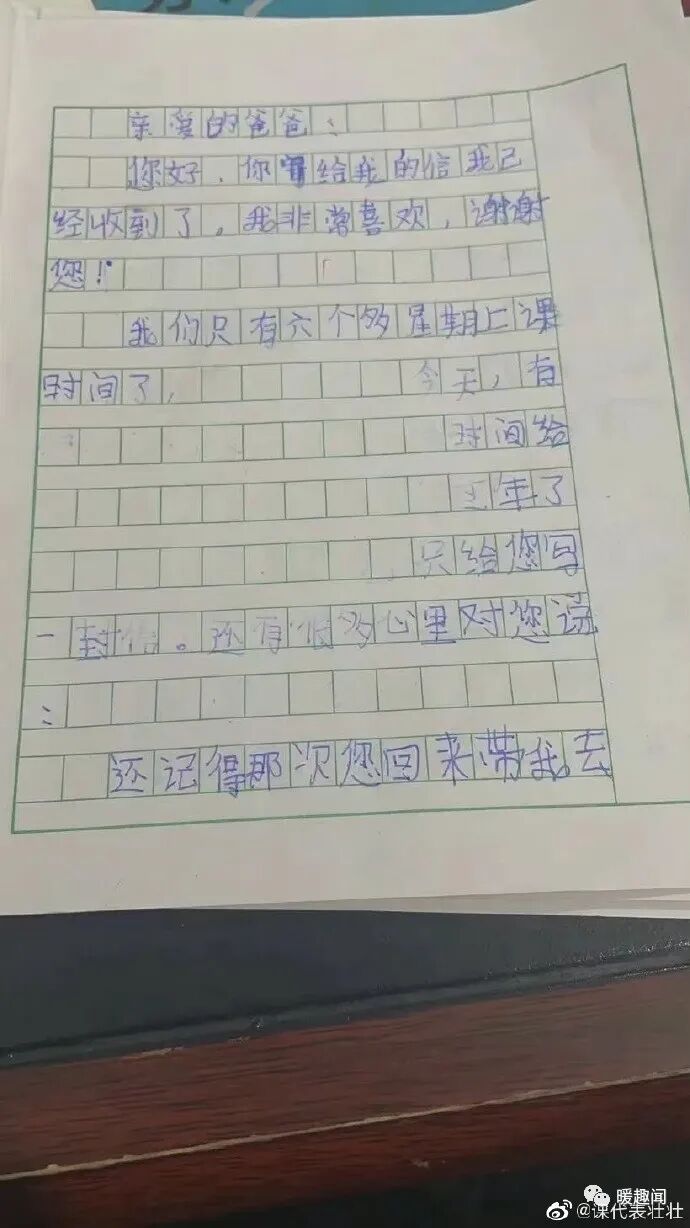 亲爱的爸爸：
您好．你写给我的信我已
经收到了，我非常喜欢，谢谢
您！
我们只有六个多星期上课
时间了， 今天，有
时间给
年了
只给您写
一封信。还有很多心里对您说
：
还记得那次您回来带我去
暖趣闻
@课代表壮壮